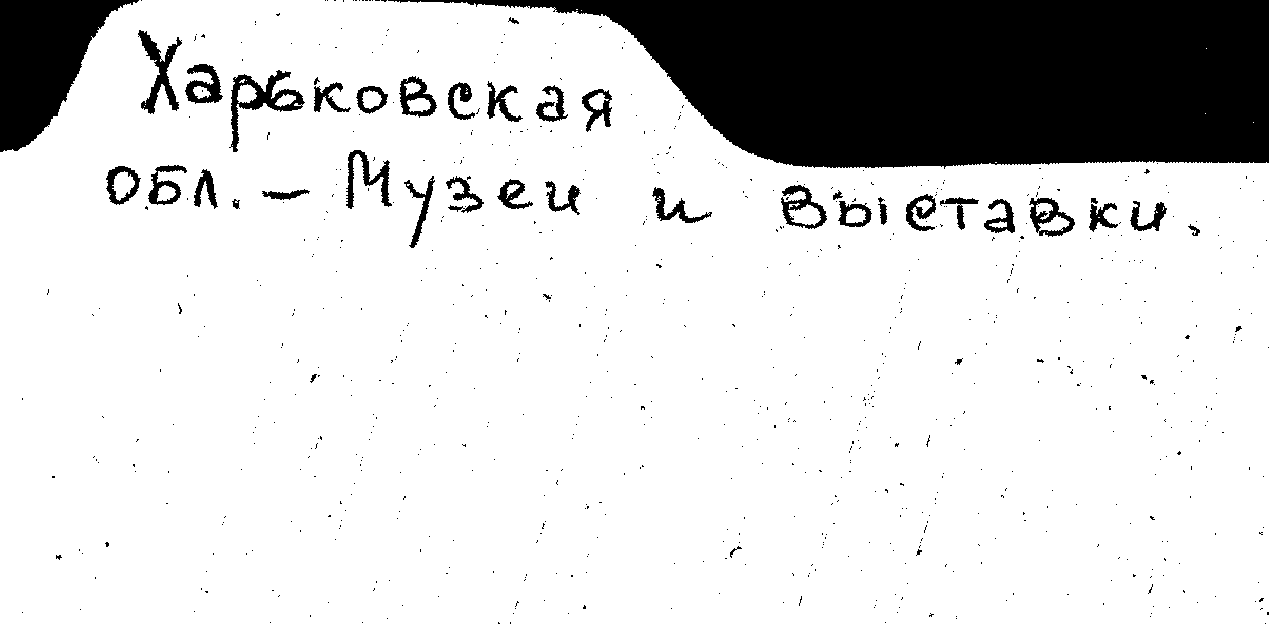 Харьковская
обл. – Музеи и выставки.